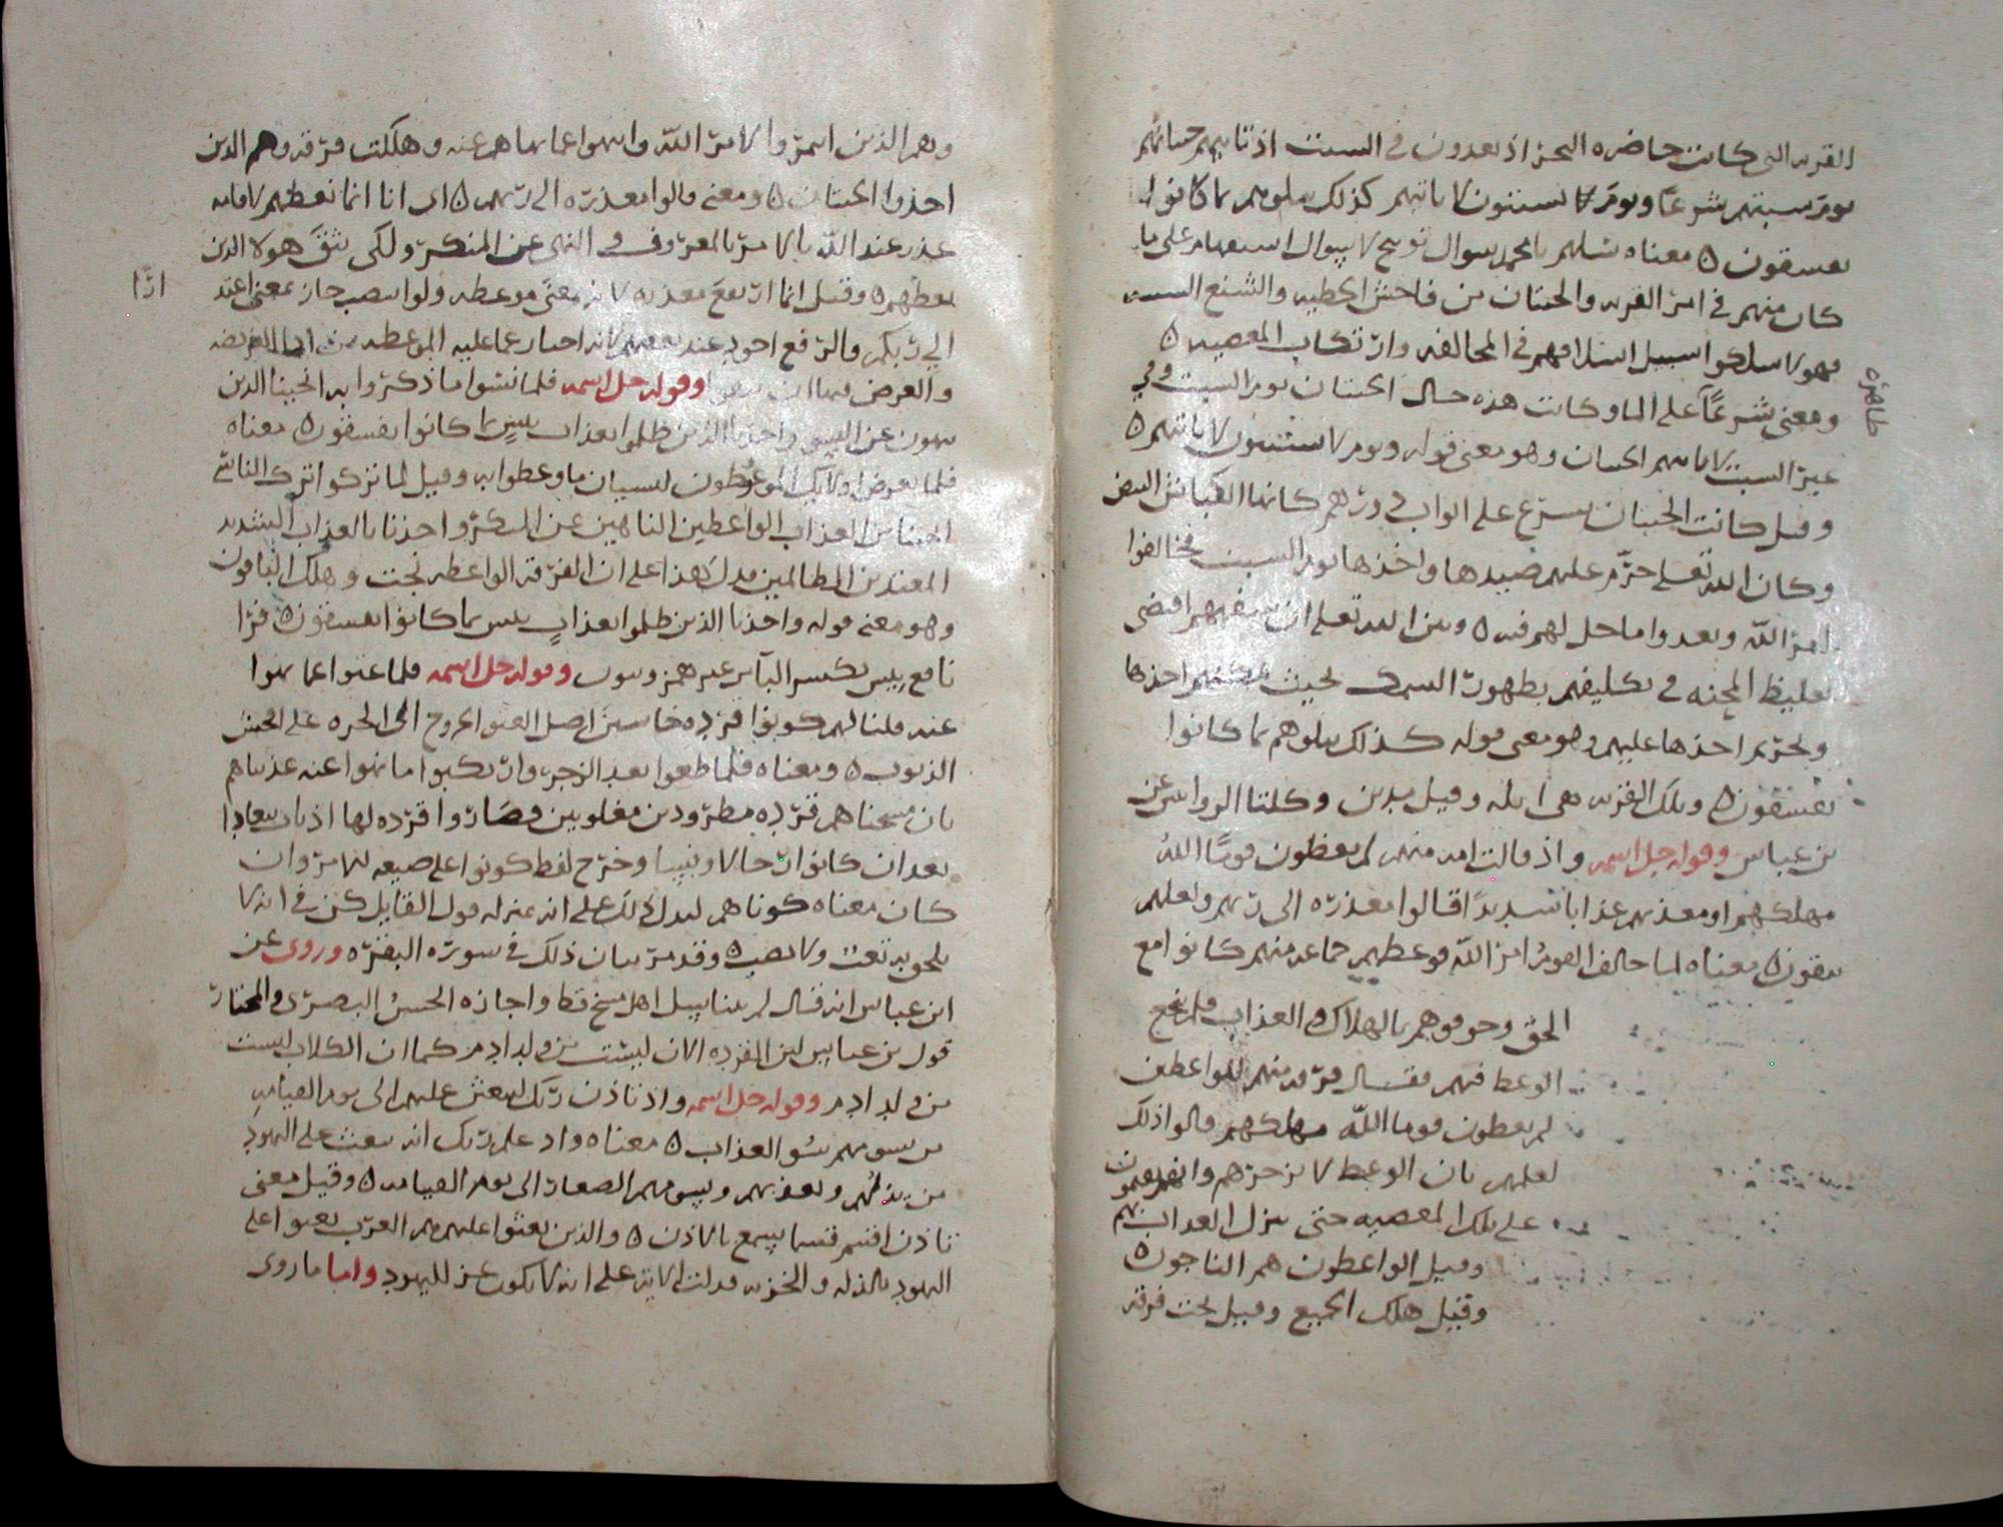 القريه التي كانت حاضره البحر اذ يعدون في السبت اذ تاتيهم حيتانهم
يوم سبتهم شرعا ويوم لا يسبتون لا تاتيهم كذلك نبلوهم بما كانوا
يفسقون ٥ معناه سلهم يا محمد سوال توبيخ لا سوال استفهام على ما
كان منهم في امر القريه والحيتان من فاحش الخطيه والشنع السبت
فهولا سلكوا سبيل اسلافهم في المخالفه وارتكاب المعصيه ٥
ومعنى شرعا على الما وكانت هذه حال الحيتان يوم السبت وفي
ظاهره
غير السبت لا تاتيهم الحيتان وهو معنى قوله ويوم لا يسبتون لا تاتيهم ٥
وقيل كانت الحيتان تسرع على ابواب دورهم كانها الكباش البيض
وكان الله تعلى حرم عليهم صيدها واخذها يوم السبت فخالفوا
امر الله وتعدوا ما حل لهم فيه ٥ وبين الله تعلى ان سفههم اقتضى
تغليظ المحنه في تكليفهم بظهور السمك بحيث يمكنهم اخذها
وتحريم اخذها عليهم وهو معنى قوله كذلك نبلوهم بما كانوا
يفسقون ٥ وتلك القريه هي ايله وقيل مدين وكلتا الروايتين عن
بن عباس وقوله جل اسمه واذ قالت امه منهم لم تعظون قوما الله
مهلكهم او معذبهم عذابا شديدا قالوا معذره الى ربهم ولعلهم
يتقون ٥ معناه لما خالف القوم امر الله فوعظهم جماعه منهم كانوا مع
الحق وخوفوهم بالهلاك والعذاب فلم ينجع
الوعظ فيهم فقال فرقه منهم للواعظين
لم تعظون قوما الله مهلكهم قالوا ذلك
لعلمهم بان الوعظ لا يزجرهم وانهم يقيمون
على تلك المعصيه حتى ينزل العذاب بهم
وقيل الواعظون هم الناجون ٥
وقيل هلك الجميع وقيل نجت فرقه
وهم الذين ائتمروا لامر الله وانتهوا عما نهاهم عنه وهلكت فرقه وهم الذين
اخذوا الحيتان ٥ ومعنى قالوا معذره الى ربهم ٥ اي انا انما نعظهم لاقامه
عذر عند الله بالامر بالمعروف والنهي عن المنكر ولكي يتق هولا الذين
نعظهم ٥ وقيل انما ارتفع معذره لانه بمعنى موعظه ولو انتصب جاز بمعنى اعتذ
ارا
الى ربكم والرفع اجود عند بعضهم لانه اخبار عما عليه الموعظه من ادا الفريضه
والغرض وقوله جل اسمه فلما نسوا ما ذكروا به انجينا الذين
ينهون عن السو واخذنا الذين ظلموا بعذاب بئيس بما كانوا يفسقون ٥ معناه
فلما تعرض اولئك الموعوظون لنسيان ما وعظوا به وقيل لما تركوا ترك الناسي
انجينا من العذاب الواعظين الناهين عن المنكر واخذنا بالعذاب الشديد
المعتدين الظالمين فدل هذا على ان الفرقه الواعظه نجت وهلك الباقون
وهو معنى قوله واخذنا الذين ظلموا بعذاب بئيس بما كانوا يفسقون ٥ قرا
نافع بيس بكسر البا من غير همز وتنوين وقوله جل اسمه فلما عتوا عما نهوا
عنه قلنا لهم كونوا قرده خاسئين اصل العتو الخروج الى الجره على افحش
الذنوب ٥ ومعناه فلما طغوا بعد الزجر وارتكبوا ما نهوا عنه عذبناهم
بان مسخناهم قرده مطرودين مغلوبين فصاروا قرده لها اذناب تعاوا
بعد ان كانوا رجالا ونسا وخرج لفظ كونوا على صيغه الامر وان
كان معناه كوناهم ليدل ذلك على انه بمنزله قول القايل كن في انه لا
يلحق به تعب ولا نصب ٥ وقد مر بيان ذلك في سوره البقره وروى عن
ابن عباس انه قال لم يتناسل اهل مسخ قط واجازه الحسن البصري والمختار
قول بن عباس لان القرده الان ليست من ولد ادم كما ان الكلاب ليست
من ولد ادم وقوله جل اسمه واذ تاذن ربك ليبعثن عليهم الى يوم القيامه
من يسومهم سو العذاب ٥ معناه واد علم ربك انه يبعث على اليهود
من يذلهم ويعذبهم ويسومهم الصغار الى يوم القيامه ٥ وقيل معنى
تاذن اقسم قسما يسمع بالاذن ٥ والذين بعثوا عليهم هم العرب بعثوا على
اليهود بالذله والجزيه فدلت الايه على انه لا يكون عز لليهود واما ما روى